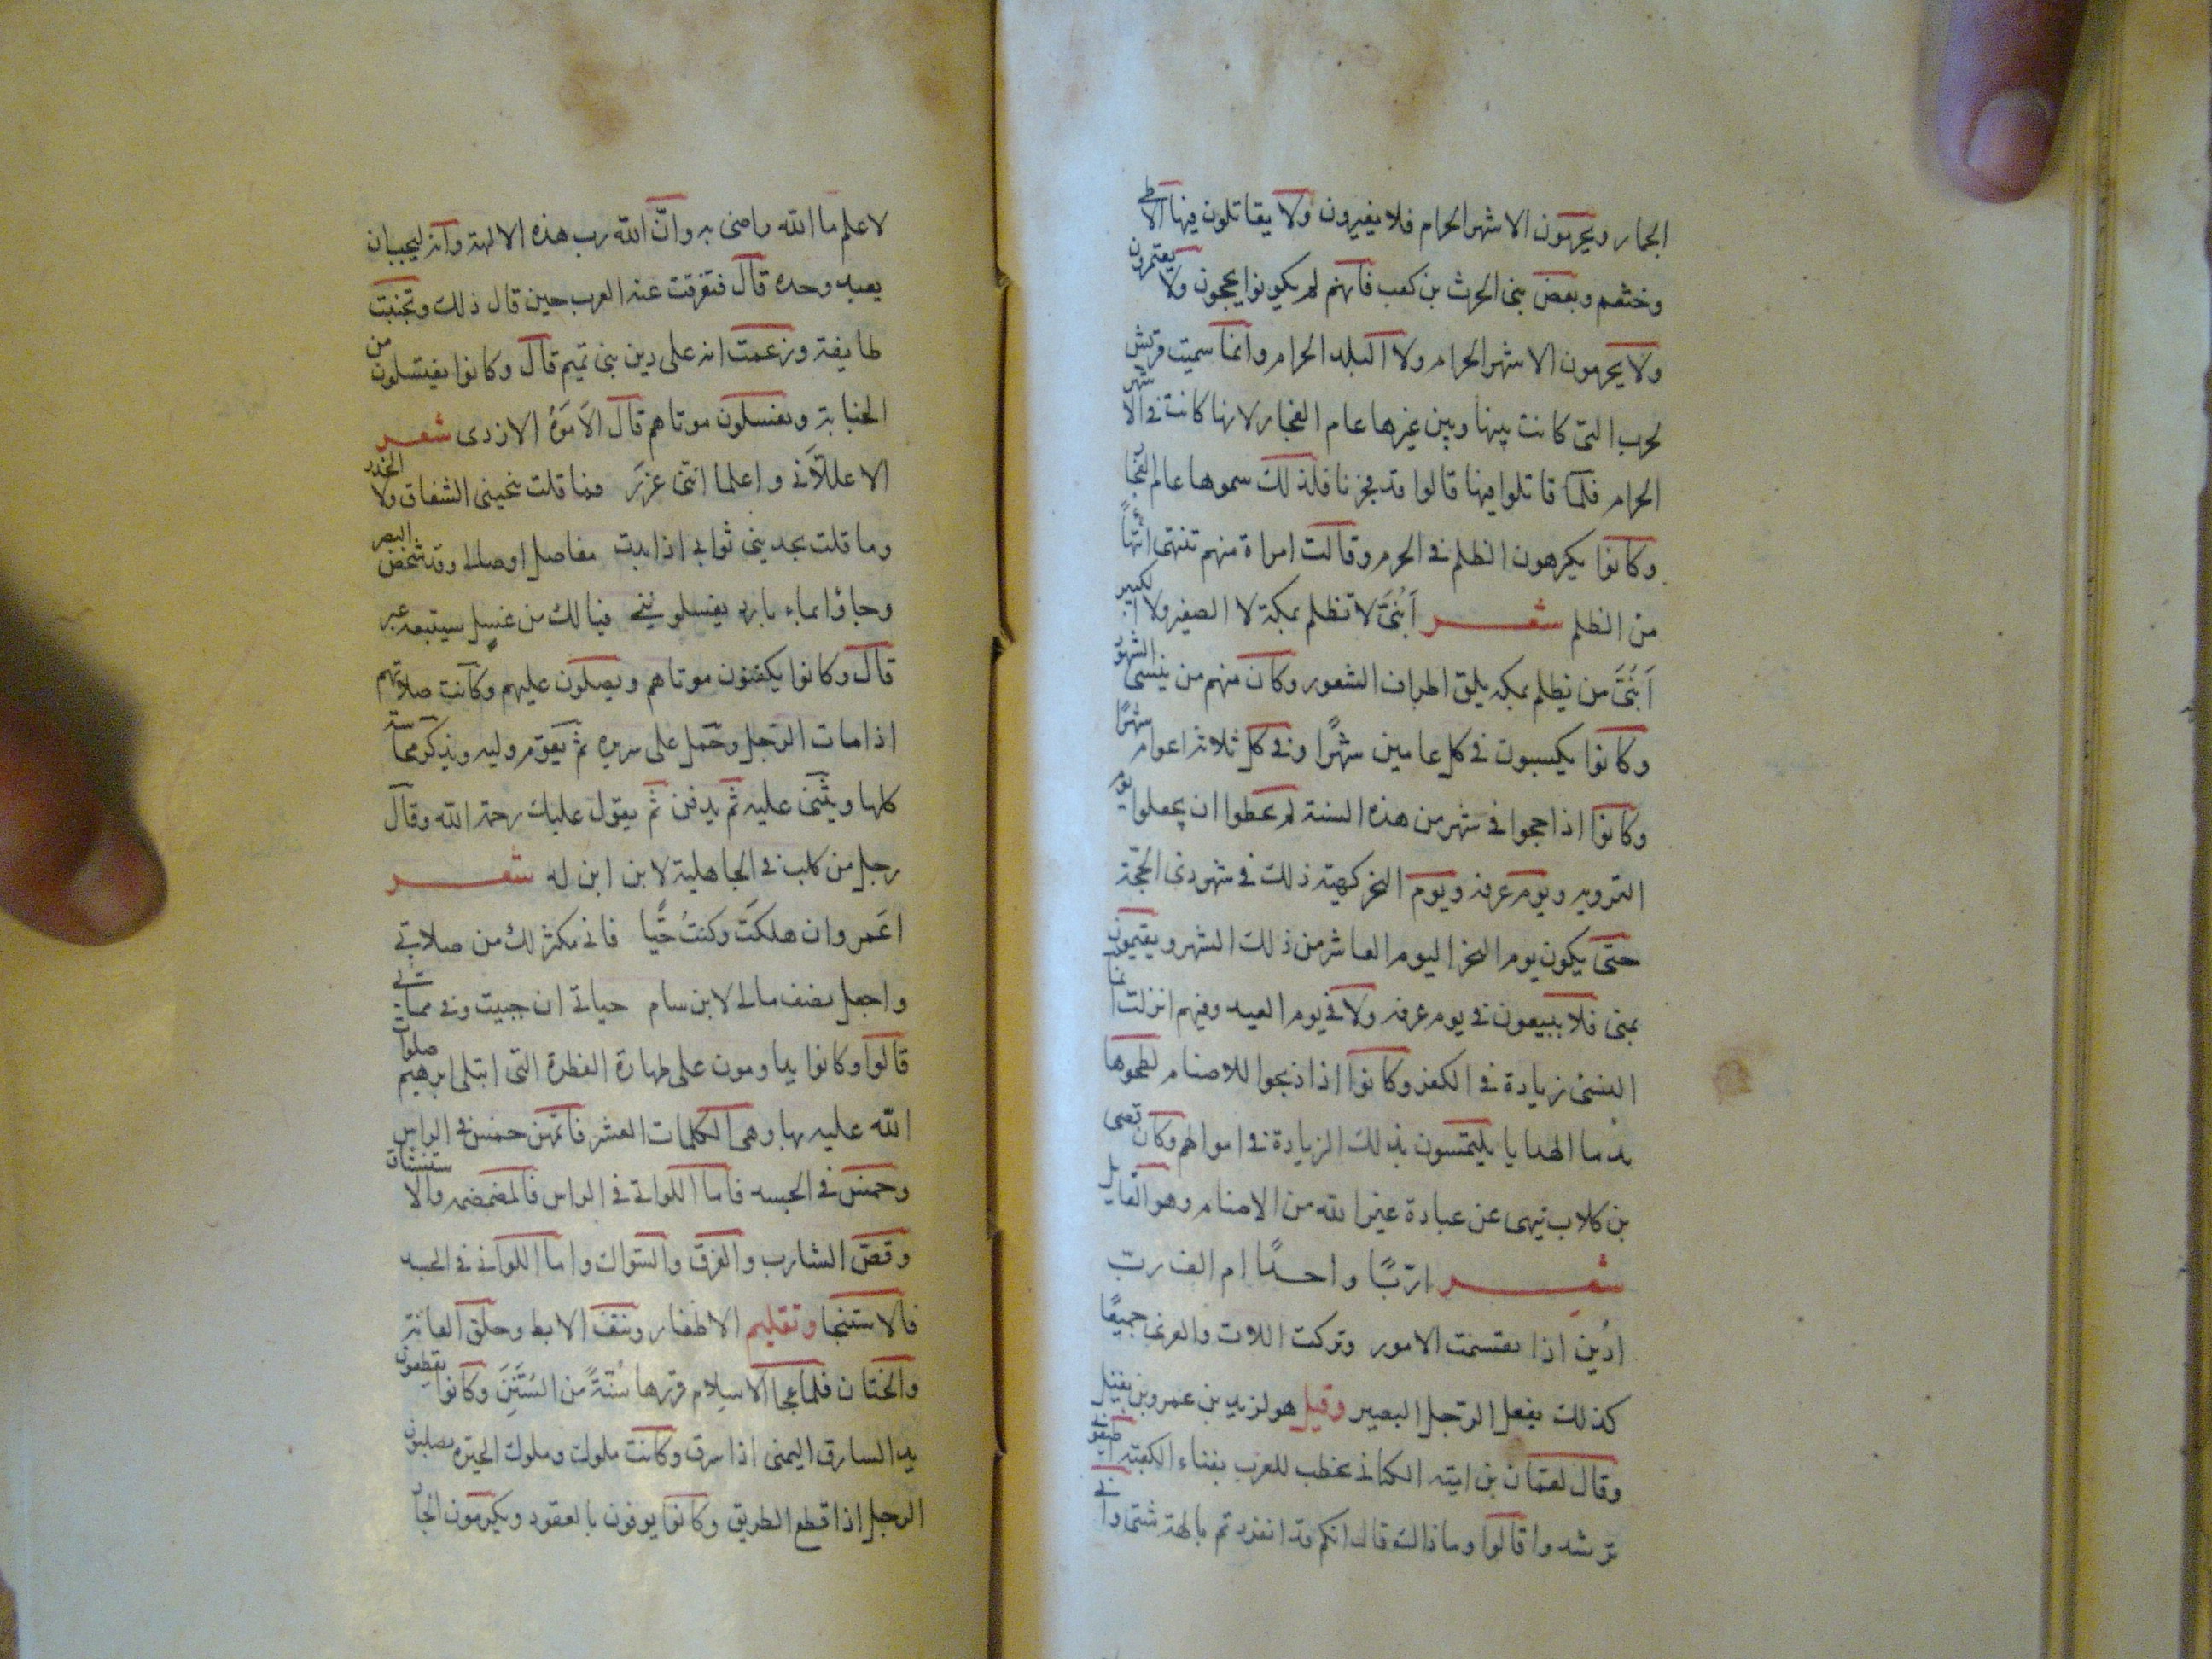 الجمار ويحرمون الاشهر الحرام فلا يغيرون ولا يقاتلون فيها الا طي
وخثعم وبعض بنى الحرث بن كعب فانهم لم يكونوا يحجون ولا يعتمرون
ولا يحرمون الاشهر الحرام ولا البلد الحرام وانما سميت قريش
لحرب التى كانت بينها وبين غيرها عام الفجار لانها كانت فى الاشهر
الحرام فلما قاتلوا فيها قالوا قد فجرنا فلذلك سموها عام الفجار
وكانوا يكرهون الظلم فى الحرم وقالت امراة منهم تنهى ابنها
من الظلم شعر اَبُنَىَّ لا تظلم بمكة لا الصغير ولا الكبير
اَبُنَىَّ من يظلم بمكه يلق اطراف الشعور وكان منهم من ينسى الشهور
وكانوا يكبسون فى كل عامين شهرًا وفى كل ثلاثه اعوام شهرًا
وكانوا اذا حجوا فى شهر من هذه السنة لم يخطوا ان يجعلوا يوم
الترويه ويوم عرفه ويوم النحر كهيئة ذلك فى شهر ذى الحجّة
حتى يكون يوم النحر اليوم العاشر من ذلك الشهر ويقيمون
بمنى فلا يبيعون فى يوم عرفه ولا فى يوم العيد وفيهم انزلت انما
النسئ زيادة فى الكفر وكانوا اذا ذبحوا للاصنام لطخوها
بدما الهدايا يلتمسون بذلك الزيادة فى اموالهم وكان قصى
بن كلاب ينهى عن عبادة غير الله من الاصنام وهو القايل
شعر اربًّا واحدًا ام الف رب
ادُين اذا تقسمت الامور وتركت اللات والعزى جميعًا
كذلك يفعل الرجل البصير وقيل هو لزيد بن عمرو بن نفيل
وقال لعتمان بن اميته الكنانى يخطب للعرب بفناء الكعبته اطيعونى
ترشدوا قالوا وما ذاك قال انكم قد انفردتم بالهة شتى وانى
لاعلم ما الله راضى به وانّ الله رب هذه الالهة وانه ليحب ان
يعبد وحده قال فتفرقت عنه العرب حين قال ذلك وتجنبت
طايفة وزعمت انه على دين بنى تميم قال وكانوا يغتسلون من
الجنابة ويغسلون موتاهم قال الاَفوَهُ الازدى شعر
الا عللانى واعلما اننى غرر فما قلت ينجينى الشقاق ولا الحذر
وما قلت يجدينى ثوابى اذا بدت مفاصل اوصالى وقد شخص البصر
وجاؤا بماء بارد يغسلوننى فيا لك من غسل سيتبعه عبر
قال وكانوا يكفنون موتاهم ويصلون عليهم وكانت صلاتهم
اذا مات الرجل وحمل على سريره ثم يقوم وليه ويذكر محاسنه
كلها ويثنى عليه ثم يدفن ثم يقول عليك رحمة الله وقال
رجل من كلب فى الجاهلية لابن ابن له شعر
اعَمرو ان هلكتَ وكنتُ حيًّا فانى مكثر لك من صلاتى
واجعل نصف مالى لابن سام حياتى ان حييت وفى مماتى
قالوا وكانوا يداومون على طهارة الفطرة التى ابتلى ابرهيم صلوات
الله عليه بها وهى الكلمات العشر فاتمهن خمس فى الراس
وخمس فى الجسد فاما اللواتى فى الراس فالمضمضه والاستنشاق
وقصّ الشارب والفرق والسّواك واما اللواتى فى الجسد
فالاستنجا وتقليم الاظفار ونتف الابط وحلق العانة
والختان فلما جا الاسلام قررها سُنّةً من السُنَنِ وكانوا يقطعون
يد السارق اليمنى اذا سرق وكانت ملوك وملوك الحيرة يصلبون
الرجل اذا قطع الطريق وكانوا يوفون بالعقود ويكرمون الجار